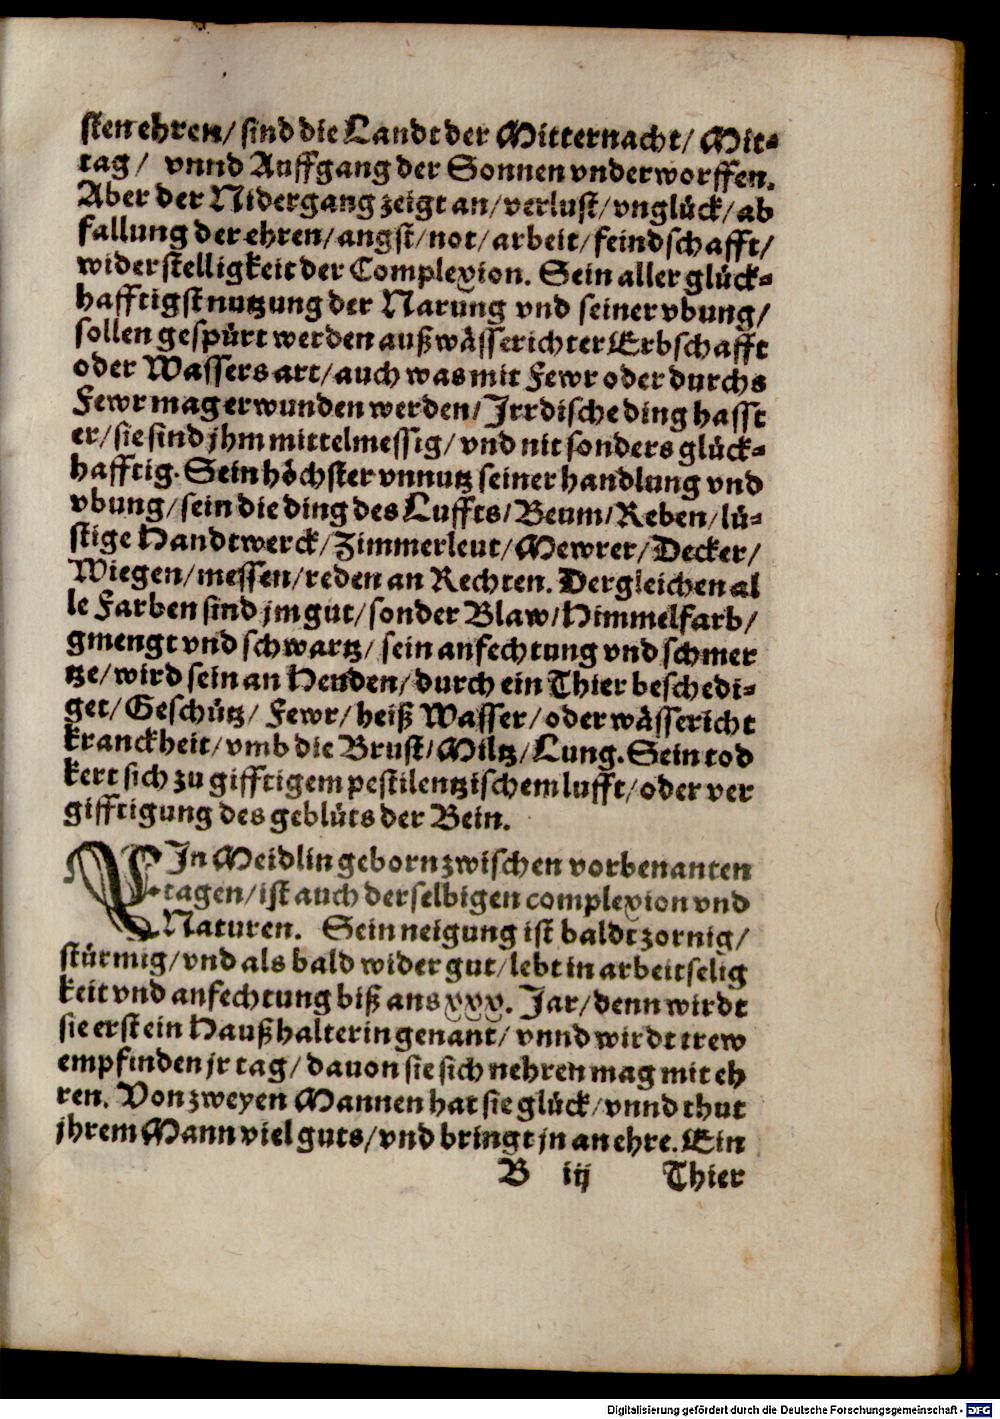 sten ehren/ sind die Landt der Mitternacht/ Mit-
tag/ vnnd Auffgang der Sonnen vnderworffen.
Aber der Nidergang zeigt an/ verlust/ vnglück/ ab
fallung der ehren/ angst/ not/ arbeit/ feindschafft/
widerstelligkeit der Complexion. Sein aller glück-
hafftigst nutzung der Narung vnd seiner vbung/
sollen gespürt werden auß wässerichter Erbschafft
oder Wassers art/ auch was mit Fewr oder durchs
Fewr mag erwunden werden/ Irrdische ding hasst
er/ sie sind jhm mittelmessig/ vnd nit sonders glück-
hafftig. Sein höchster vnnutz seiner handlung vnd
vbung/ sein die ding des Luffts/ Beum/ Reben/ lü-
stige Handtwerck/ Zimmerleut/ Mewrer/ Decker/
Wiegen/ messen/ reden an Rechten. Dergleichen al
le Farben sind jm gut/ sonder Blaw/ Himmelfarb/
gmengt vnd schwartz/ sein anfechtung vnd schmer
tze/ wird sein an Henden/ durch ein Thier beschedi-
get/ Geschütz/ Fewr/ heiß Wasser/ oder wässericht
kranckheit/ vmb die Brust/ Miltz/ Lung. Sein tod
kert sich zu gifftigem pestilentzischem lufft/ oder ver
gifftigung des geblüts der Bein.
EIn Meidlin geborn zwischen vorbenanten
tagen/ ist auch derselbigen complexion vnd
Naturen. Sein neigung ist baldt zornig/
stürmig/ vnd als bald wider gut/ lebt in arbeitselig
keit vnd anfechtung biß ans xxx. Jar/ denn wirdt
sie erst ein Haußhalterin genant/ vnnd wirdt trew
empfinden jr tag/ dauon sie sich nehren mag mit eh
ren. Von zweyen Mannen hat sie glück/ vnnd thut
jhrem Mann viel guts/ vnd bringt jn an ehre. Ein
B iij Thier
Digitalisierung gefördert durch die Deutsche Forschungsgemeinschaft - DFG